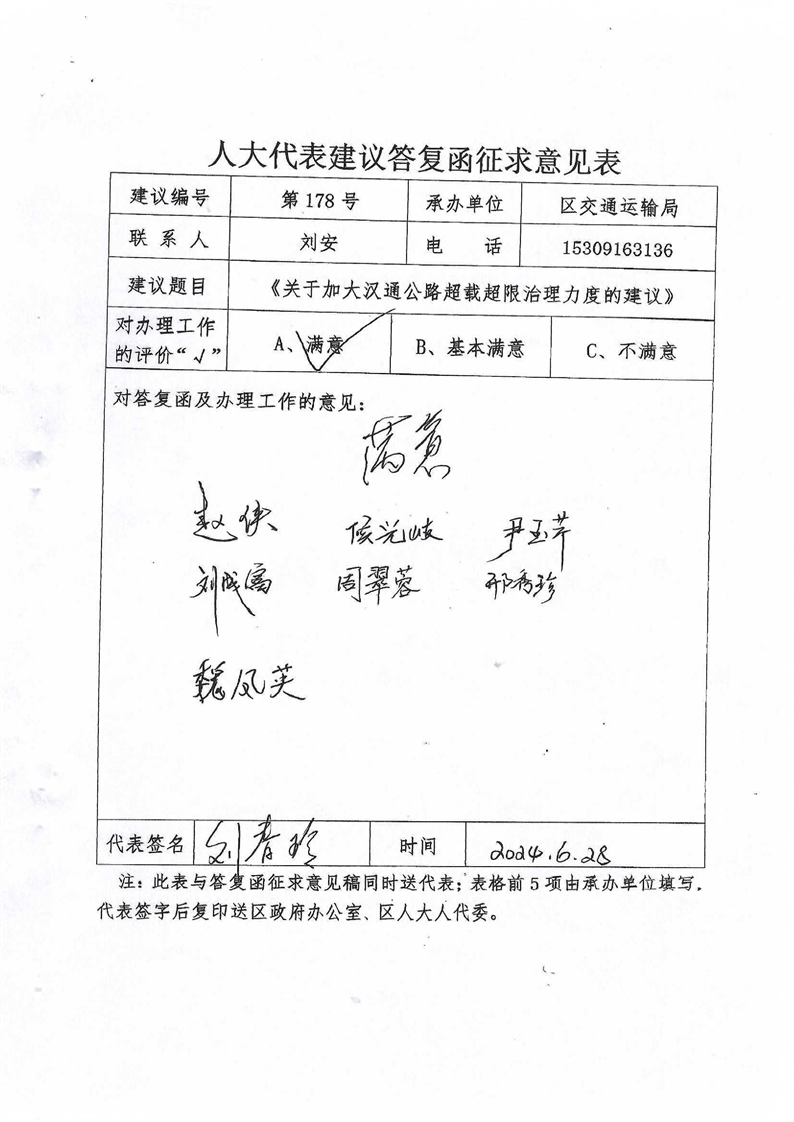 人大代表建议答复函征求意见表
建议编号 第178号 承办单位 区交通运输局
联系人 刘安 电话 15309163136
建议题目 《关于加大汉通公路超载超限治理力度的建议》
对办理工作
的评价“√” A、满意 B、基本满意 C、不满意
对答复函及办理工作的意见：
满意
赵侠 侯光岐 尹玉芹
刘成富 周翠蓉 邢秀珍
魏凤英
代表签名 刘春玲 时间 2024.6.28
注：此表与答复函征求意见稿同时送代表；表格前5项由承办单位填写，
代表签字后复印送区政府办公室、区人大人代委。